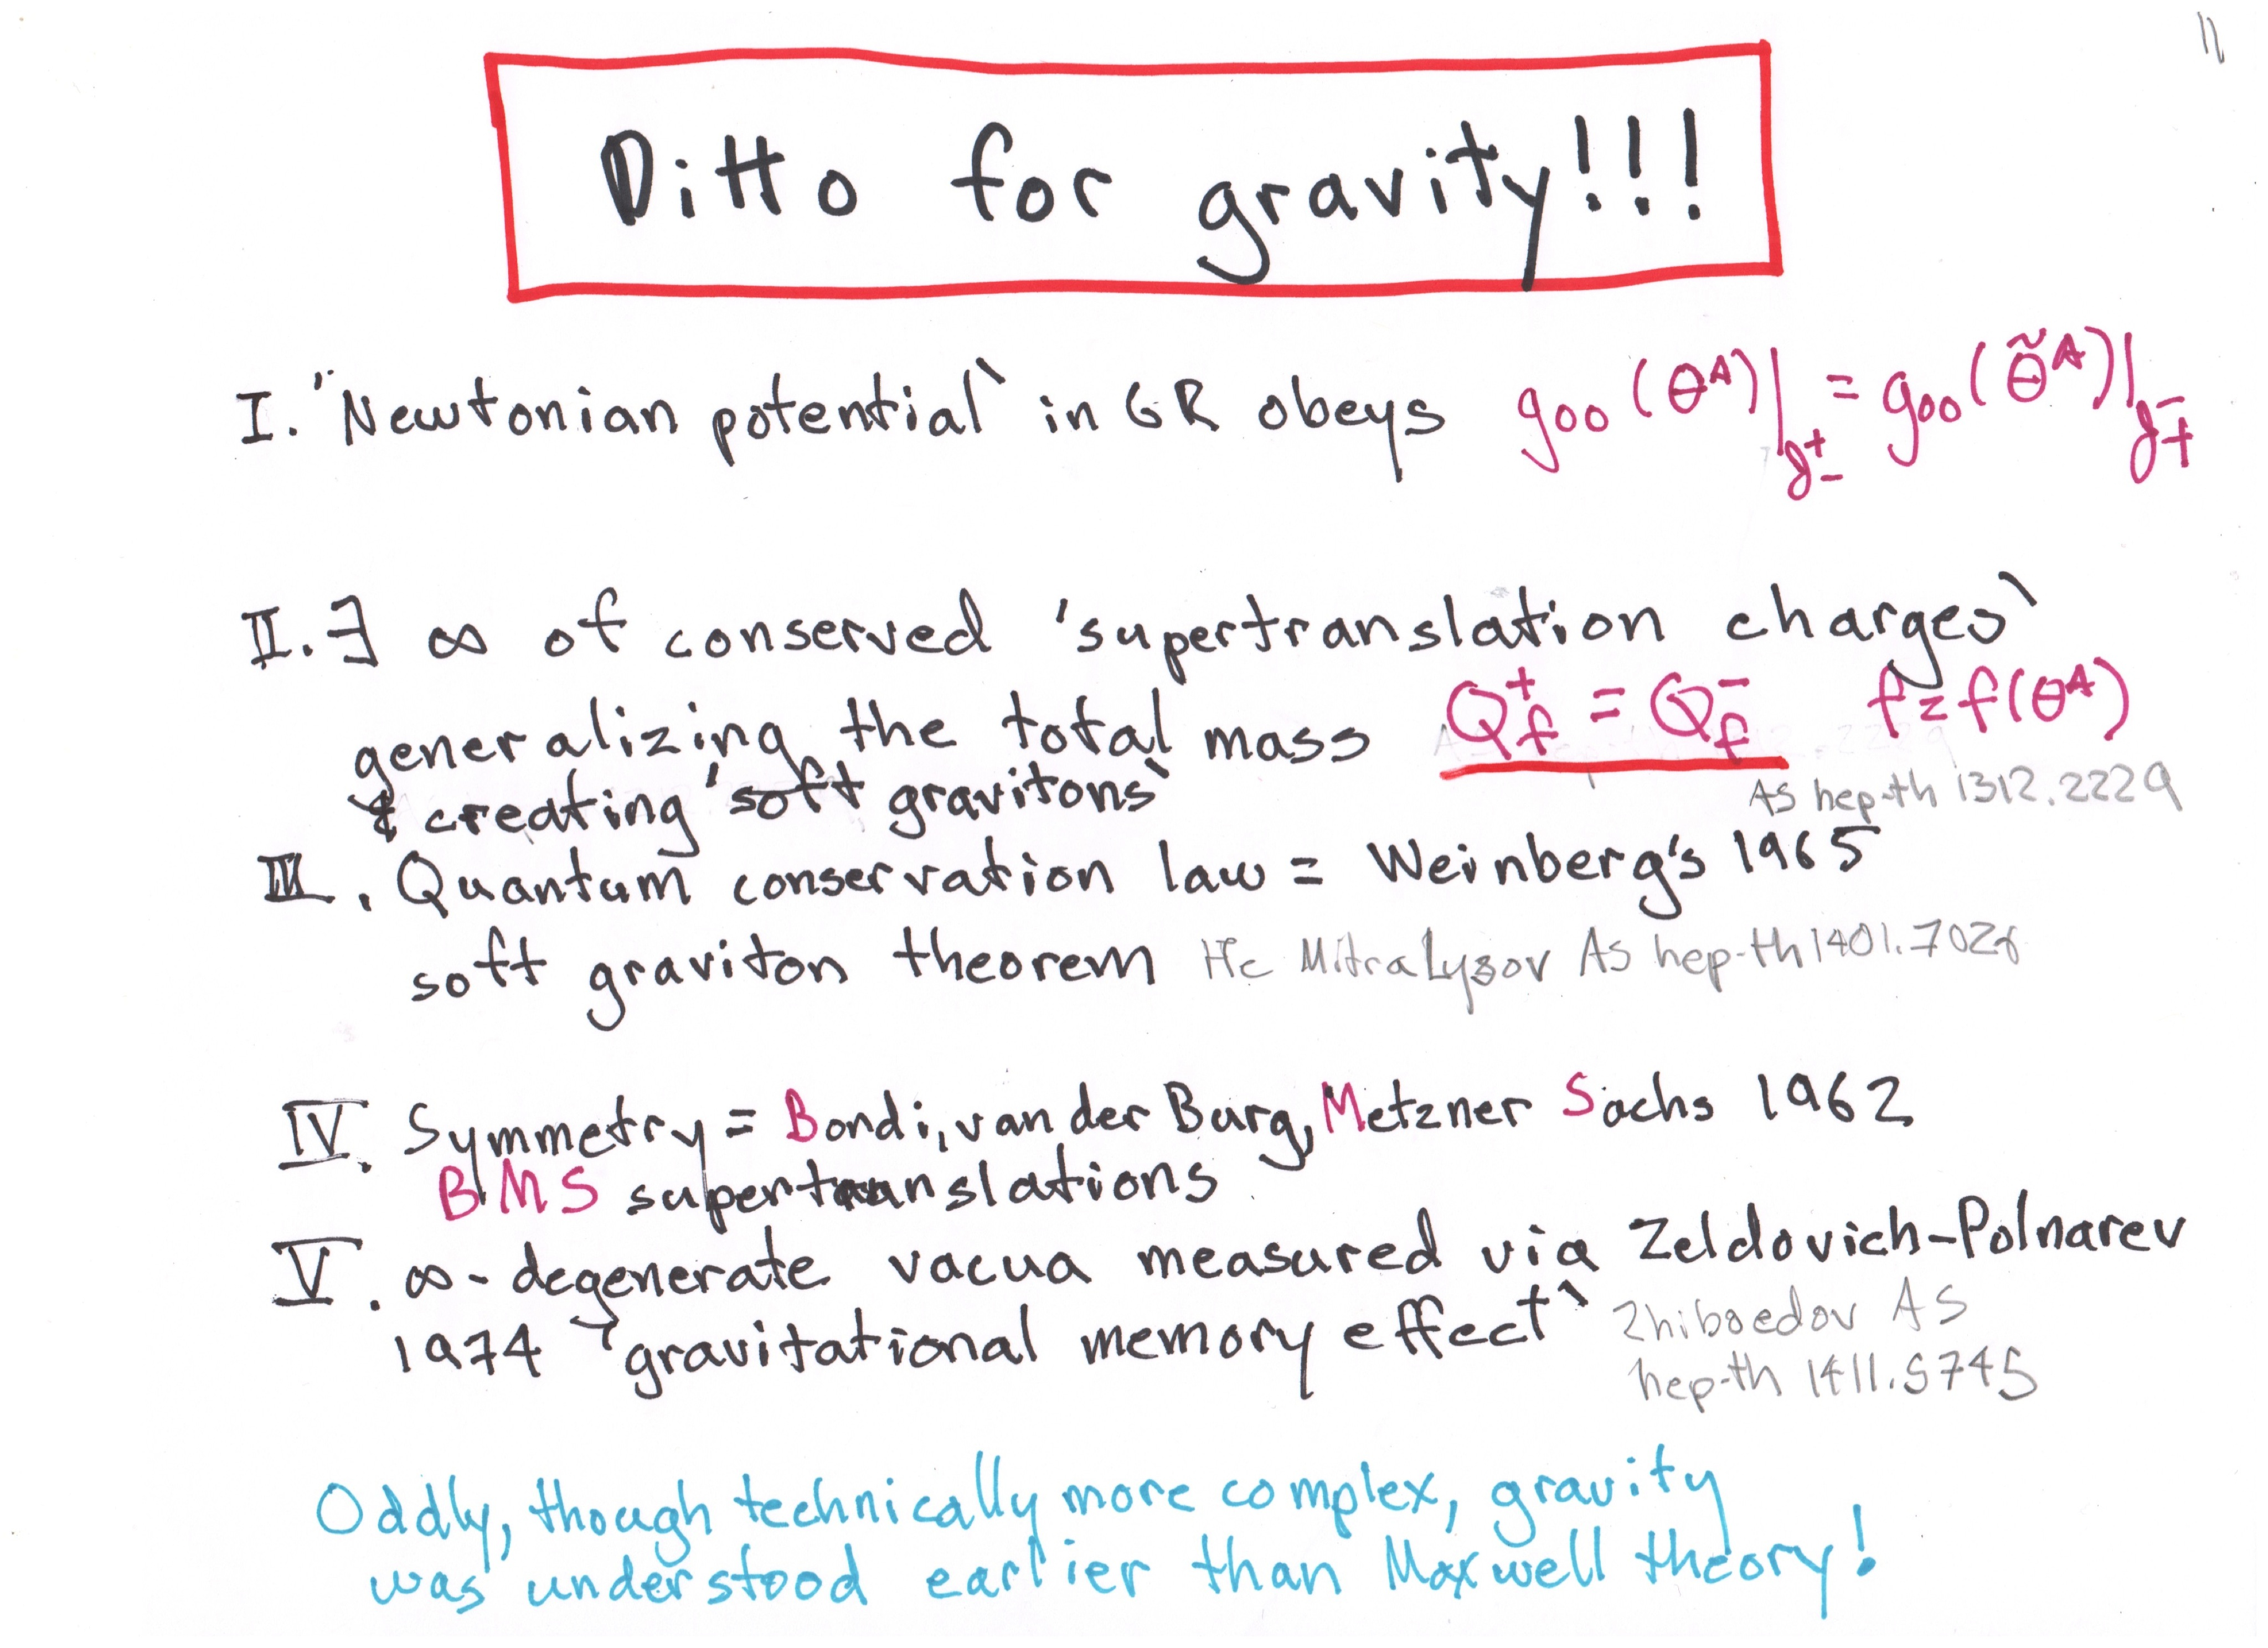 11
Ditto for gravity!!!
I. "Newtonian potential` in GR obeys g₀₀(θᴬ)|𝓘⁺₋ = g₀₀(θ̃ᴬ)|𝓘⁻₊
II. ∃ ∞ of conserved 'supertranslation charges`
generalizing the total mass Q⁺_f = Q⁻_f f=f(θᴬ)
& creating 'soft gravitons` As hep-th 1312.2229
III. Quantum conservation law = Weinberg's 1965
soft graviton theorem He Mitra Lysov As hep-th 1401.7026
IV. Symmetry = Bondi, van der Burg, Metzner Sachs 1962
BMS supertranslations
V. ∞-degenerate vacua measured via Zeldovich-Polnarev
1974 'gravitational memory effect` Zhiboedov AS
hep-th 1411.5745
Oddly, though technically more complex, gravity
was understood earlier than Maxwell theory!